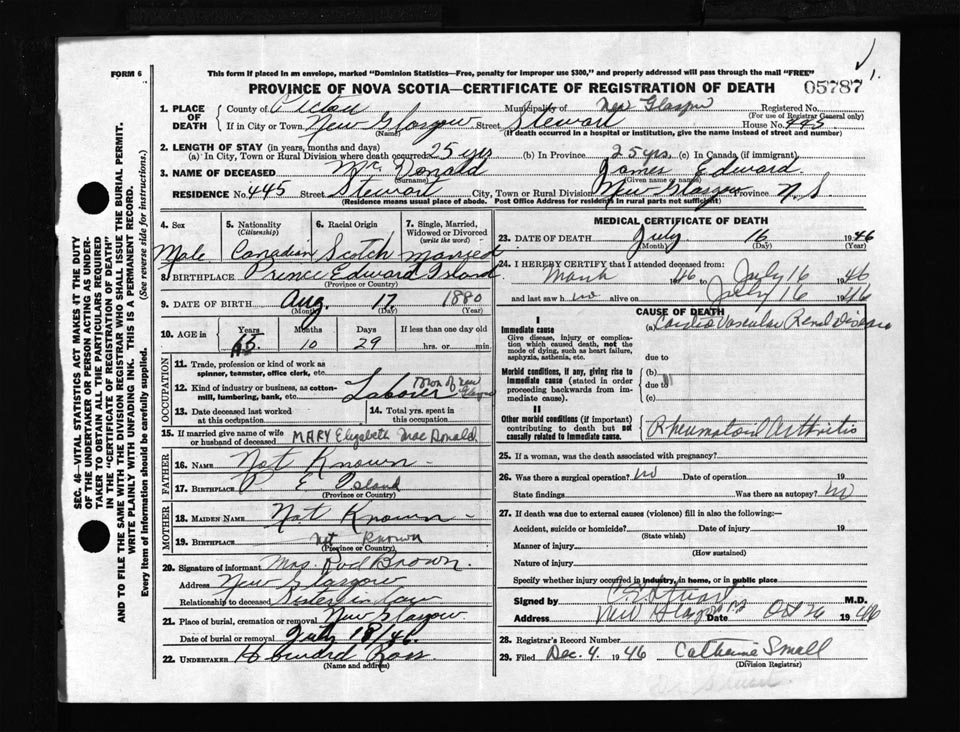 FORM 6
This form if placed in an envelope, marked "Dominion Statistics—Free, penalty for improper use $300," and properly addressed will pass through the mail "FREE"
1.
PROVINCE OF NOVA SCOTIA—CERTIFICATE OF REGISTRATION OF DEATH
05787
1. PLACE OF DEATH
County of Pictou Municipality of New Glasgow Registered No.
(For use of Registrar General only)
If in City or Town New Glasgow Street Stewart House No. 445
(If death occurred in a hospital or institution, give the name instead of street and number)
2. LENGTH OF STAY (in years, months and days)
(a) In City, Town or Rural Division where death occurred 25 yrs (b) In Province 25 yrs. (c) In Canada (if immigrant)
3. NAME OF DECEASED McDonald James Edward
(Surname) (Given name or names)
RESIDENCE No. 445 Street Stewart City, Town or Rural Division New Glasgow Province N.S
(Residence means usual place of abode. Post Office Address for residents in rural parts not sufficient)
4. Sex
5. Nationality (Citizenship)
6. Racial Origin
7. Single, Married, Widowed or Divorced (write the word)
Male Canadian Scotch Married
8. BIRTHPLACE Prince Edward Island
(Province or Country)
9. DATE OF BIRTH Aug. 17 1880
(Month) (Day) (Year)
10. AGE in Years Months Days If less than one day old
65 10 29 hrs. or min.
OCCUPATION
11. Trade, profession or kind of work as spinner, teamster, office clerk, etc.
12. Kind of industry or business, as cotton-mill, lumbering, bank, etc.
Laborer Town of New Glasgow
13. Date deceased last worked at this occupation
14. Total yrs. spent in this occupation
15. If married give name of wife or husband of deceased MARY Elizabeth MacDonald
FATHER
16. NAME Not Known
17. BIRTHPLACE P E Island
(Province or Country)
MOTHER
18. MAIDEN NAME Not Known
19. BIRTHPLACE Not Known
(Province or Country)
20. Signature of informant Mrs. Rod Brown.
Address New Glasgow
Relationship to deceased Sister in law
21. Place of burial, cremation or removal New Glasgow.
Date of burial or removal July 18/46.
22. UNDERTAKER Howard Ross.
(Name and address)
MEDICAL CERTIFICATE OF DEATH
23. DATE OF DEATH July 16 1946
(Month) (Day) (Year)
24. I HEREBY CERTIFY that I attended deceased from:
March 46 to July 16 1946
and last saw h im alive on July 16 1946
CAUSE OF DEATH
I
Immediate cause (a) Cardio Vascular Renal Disease
Give disease, injury or complication which caused death, not the mode of dying, such as heart failure, asphyxia, asthenia, etc.
due to
Morbid conditions, if any, giving rise to immediate cause (stated in order proceeding backwards from immediate cause).
(b)
due to
(c)
II
Other morbid conditions (if important) contributing to death but not causally related to immediate cause.
Rheumatoid Arthritis
25. If a woman, was the death associated with pregnancy?
26. Was there a surgical operation? No Date of operation 19
State findings Was there an autopsy? No
27. If death was due to external causes (violence) fill in also the following:—
Accident, suicide or homicide? Date of injury 19
(State which)
Manner of injury
(How sustained)
Nature of injury
Specify whether injury occurred in industry, in home, or in public place
Signed by M.D.
Address New Glasgow Date Oct 26 1946
28. Registrar's Record Number
29. Filed Dec. 4. 1946 Catherine Small
(Division Registrar)
SEC. 46—VITAL STATISTICS ACT MAKES IT THE DUTY
OF THE UNDERTAKER OR PERSON ACTING AS UNDER-
TAKER TO OBTAIN ALL THE PARTICULARS REQUIRED
IN THE "CERTIFICATE OF REGISTRATION OF DEATH"
AND TO FILE THE SAME WITH THE DIVISION REGISTRAR WHO SHALL ISSUE THE BURIAL PERMIT.
WRITE PLAINLY WITH UNFADING INK. THIS IS A PERMANENT RECORD.
Every item of Information should be carefully supplied. (See reverse side for instructions.)